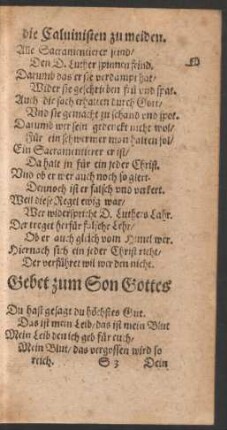 die Caluinisten zu meiden.
Alle Sacramentierer seind/
Den D. Luther spinnen feind.
Darumb das er sie verdampt hat/
Wider sie geschriben frü vnd spat.
Auch die sach erhalten durch Gott/
Vnd sie gemacht zu schand vnd spot.
Darumb wer sein gedenckt nicht wol/
Für ein schwermer man halten sol/
Ein Sacramentierer er ist/
Da halt in für ein jeder Christ.
Vnd ob er wer auch noch so glert
Dennoch ist er falsch vnd verkert.
Weil diese Regel ewig war/
Wer widerspricht D. Luthers Lahr.
Der treget herfür falsche Lehr/
Ob er auch gleich vom Himel wer.
Hiernach sich ein jeder Christ richt/
Der verführet wil werden nicht.
Gebet zum Son Gottes
Du hast gesagt du höchstes Gut.
Das ist mein Leib/ das ist mein Blut
Mein Leib den ich geb für euch/
Mein Blut/ das vergossen wird so
reich. S 3 Dein